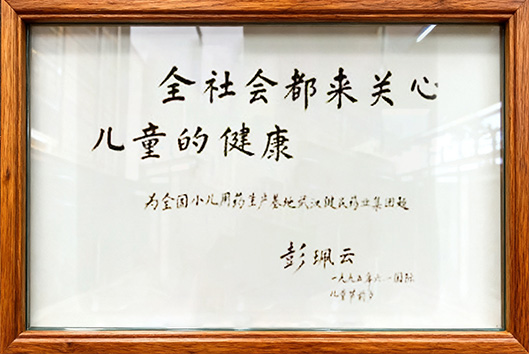 全社会都来关心
儿童的健康
为全国小儿用药生产基地武汉健民药业集团题
彭珮云
一九九五年六一国际
儿童节前夕